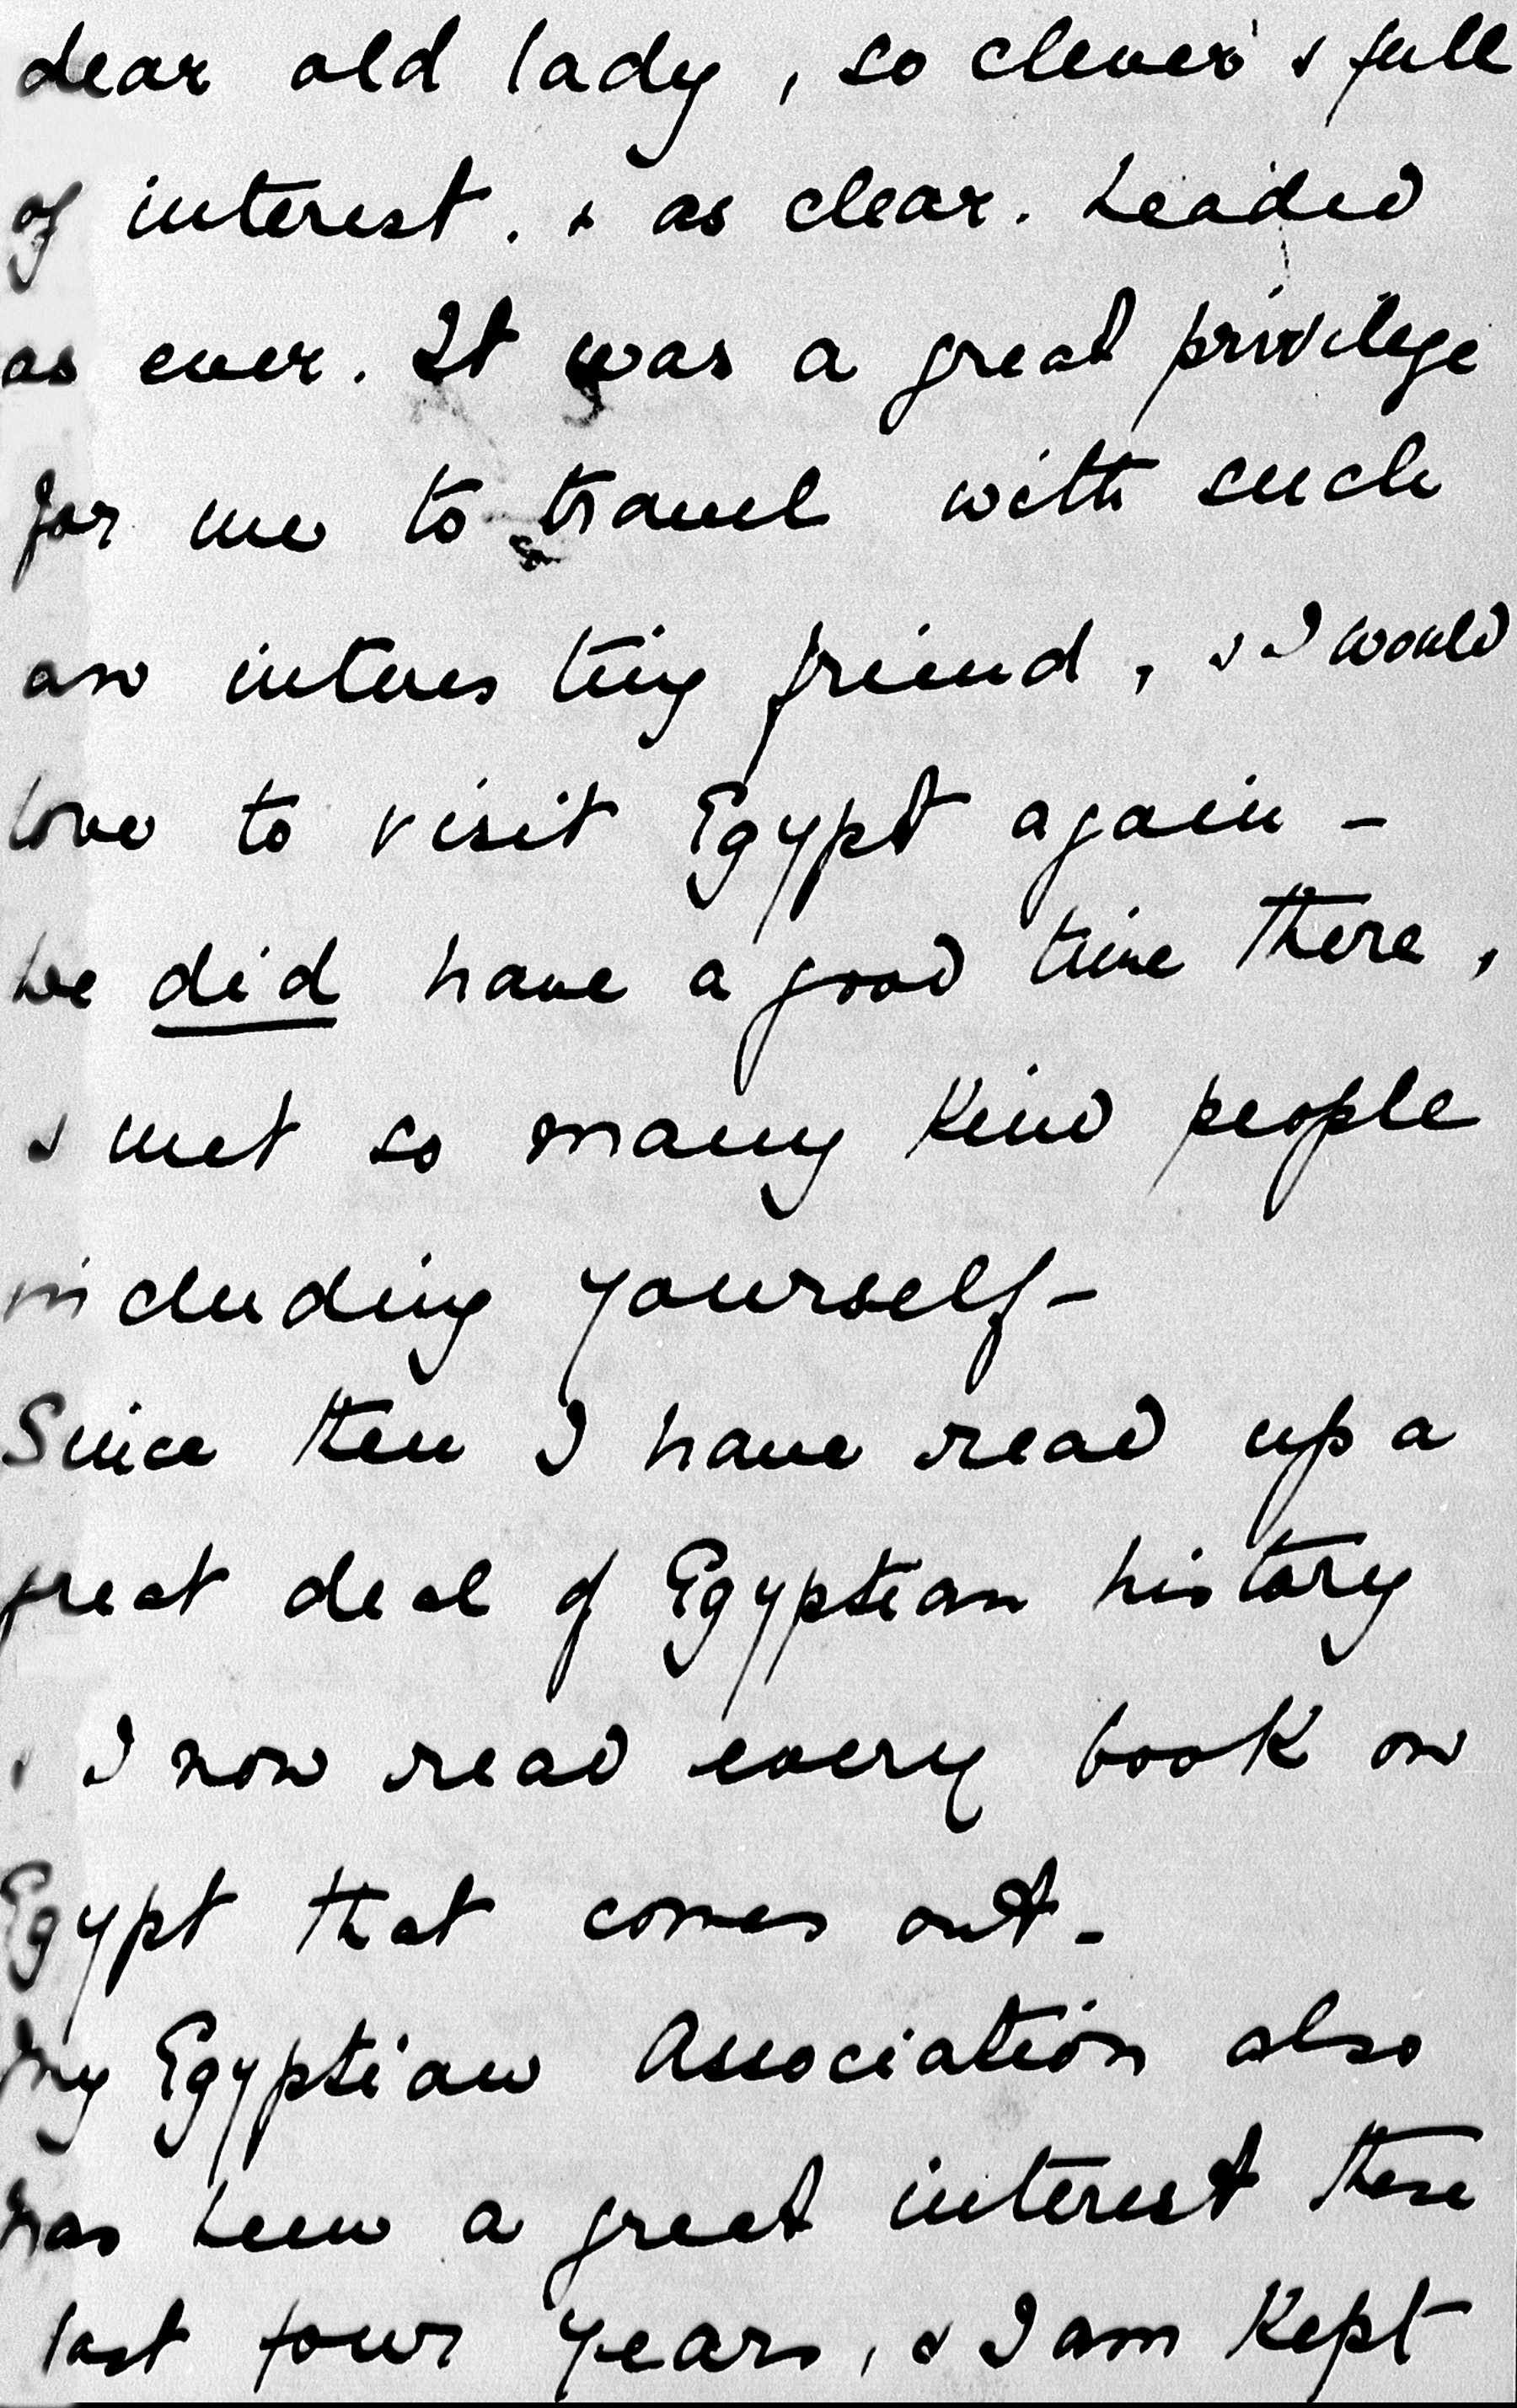 dear old lady, so clever & full
of interest. & as clear. headed
as ever. It was a great privilege
for me to travel with such
an interesting friend, & I would
love to visit Egypt again -
we did have a good time there,
& met so many kind people
including yourself -
Since then I have read up a
great deal of Egyptian history
& I now read every book on
Egypt that comes out -
My Egyptian Association also
has been a great interest these
last four years, & I am kept